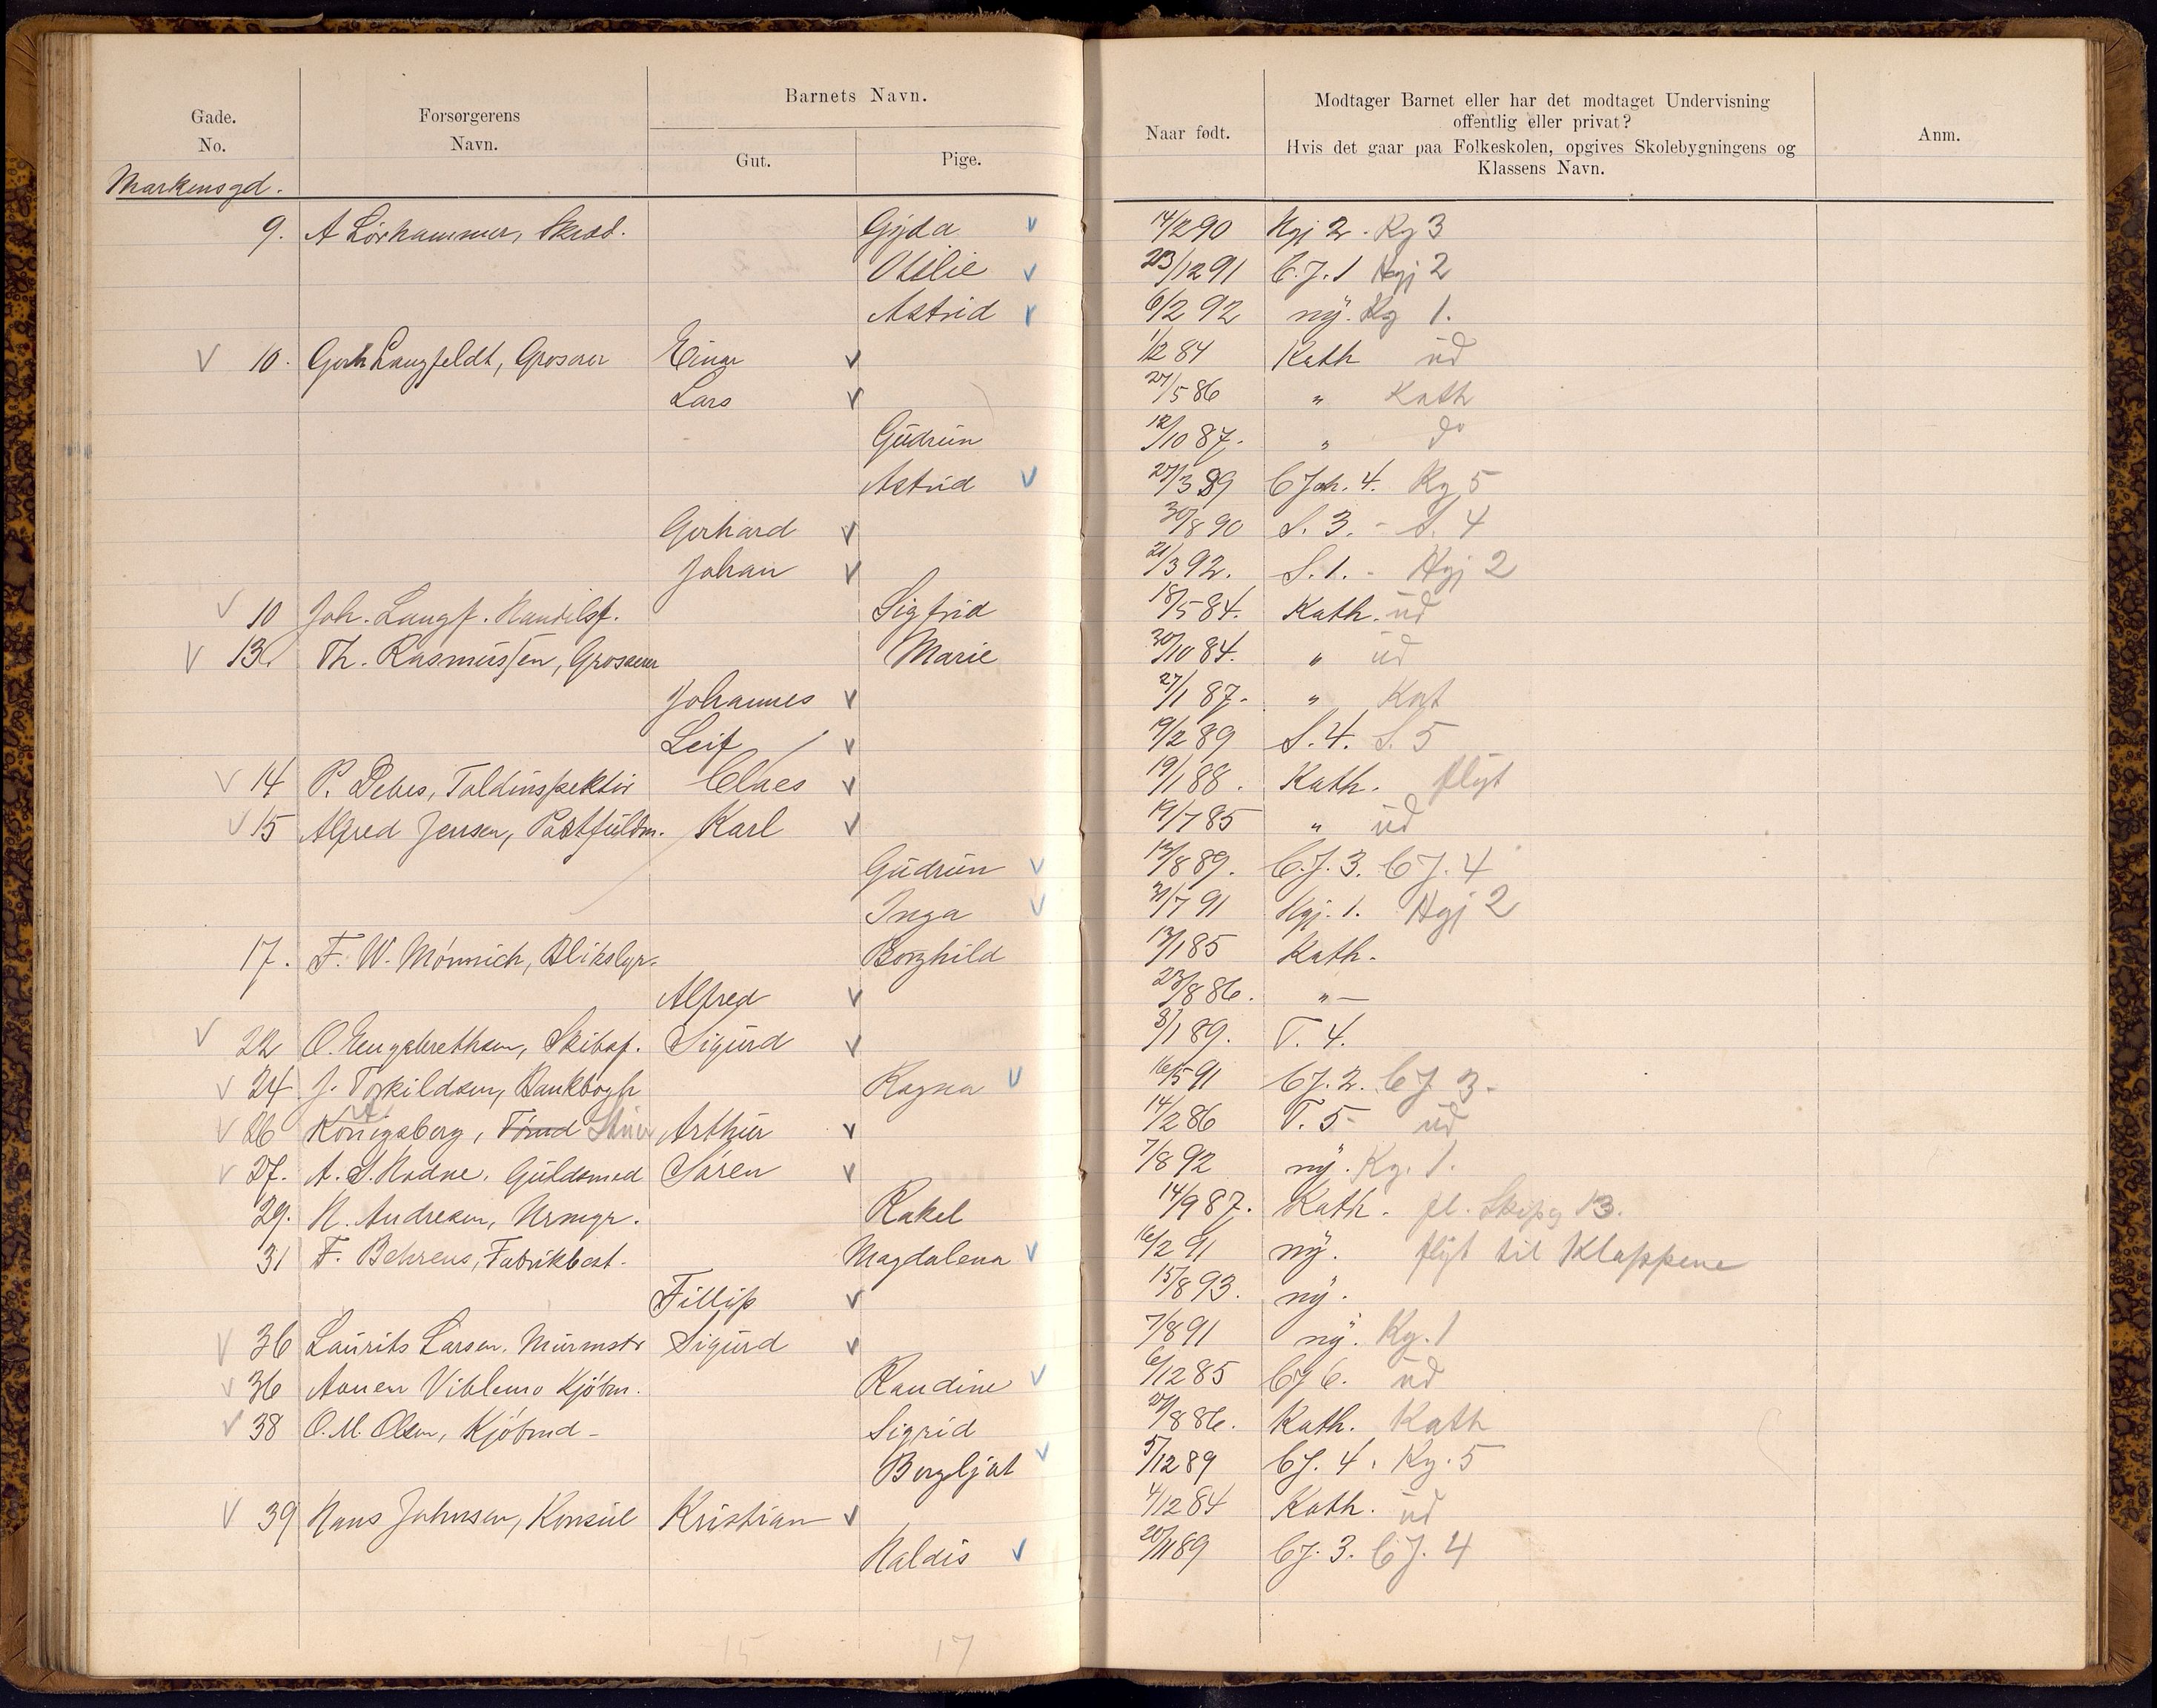 Gade.
No.
Forsørgerens
Navn.
Barnets Navn.
Gut.
Pige.
Naar født.
Modtager Barnet eller har det modtaget Undervisning
offentlig eller privat?
Hvis det gaar paa Folkeskolen, opgives Skolebygningens og
Klassens Navn.
Anm.
Markensgd.
9. A Lörhammer, Skrad. Gyda 14/2 90 Kgj 2 - Kg 3
Otilie 23/12 91 C.J. 1 Kgj 2
Astrid 6/2 92 ny. Kg 1.
10. Gerh Langfeldt, Grosserer Einar 1/12 84 Kath ud
Lars 27/5 86 " Kath
Gudrun 12/10 87. " do
Astrid 27/3 89 C Joh. 4. Kg 5
Gerhard 30/8 90 S. 3. - S. 4
Johan 21/3 92. S. 1. - Kgj 2
10 Joh. Langf. Handelsf. Sigfrid 18/5 84. Kath. ud
13. Th. Rasmussen, Grosserer Marie 30/10 84. " ud
Johannes 27/1 87. " Kat
Leif 19/2 89 S. 4. S. 5
14 P. Debes, Toldinspektör Claes 19/1 88. Kath. flyt
15 Alfred Jensen, Postfuldm. Karl 19/7 85 " ud
Gudrun 12/8 89. C.J. 3. CJ. 4
Inga 31/7 91 Kgj. 1. Kgj 2
17. F. W. Mönnich, Blikslgr. Borghild 13/1 85 Kath.
Alfred 23/8 86. " —
22 O. Engebrethsen, Skibsf. Sigurd 3/1 89. T. 4.
24 J. Torkildsen, Bankbogh Ragna 16/5 91 CJ. 2. CJ 3.
26 Königsberg, Arthur 14/2 86 T. 5 - ud
27. A. S. Rodne, Guldsmed Sören 7/8 92 ny. Kg. 1.
29. N. Andresen, Urmgr. Rakel 14/9 87. Kath. fl. Skipg 13.
31 F. Behrens, Fabrikbest. Magdalena 16/2 91 ny. flyt til Klappene
Fillip 15/8 93. ny.
36 Laurits Larsen, Murmstr Sigurd 7/8 91 ny. Kg. 1
36 Aanen Viblemo Kjöbm. Randine 6/12 85 CJ 6. ud
38 O. M. Olsen, Kjöbmd - Sigrid 27/8 86. Kath. Kath
Bergljot 5/12 89 CJ. 4. Kg. 5
39 Hans Johnsen, Konsul Kristian 4/12 84 Kath. ud
Haldis 20/11 89 CJ. 3. CJ. 4
15 17